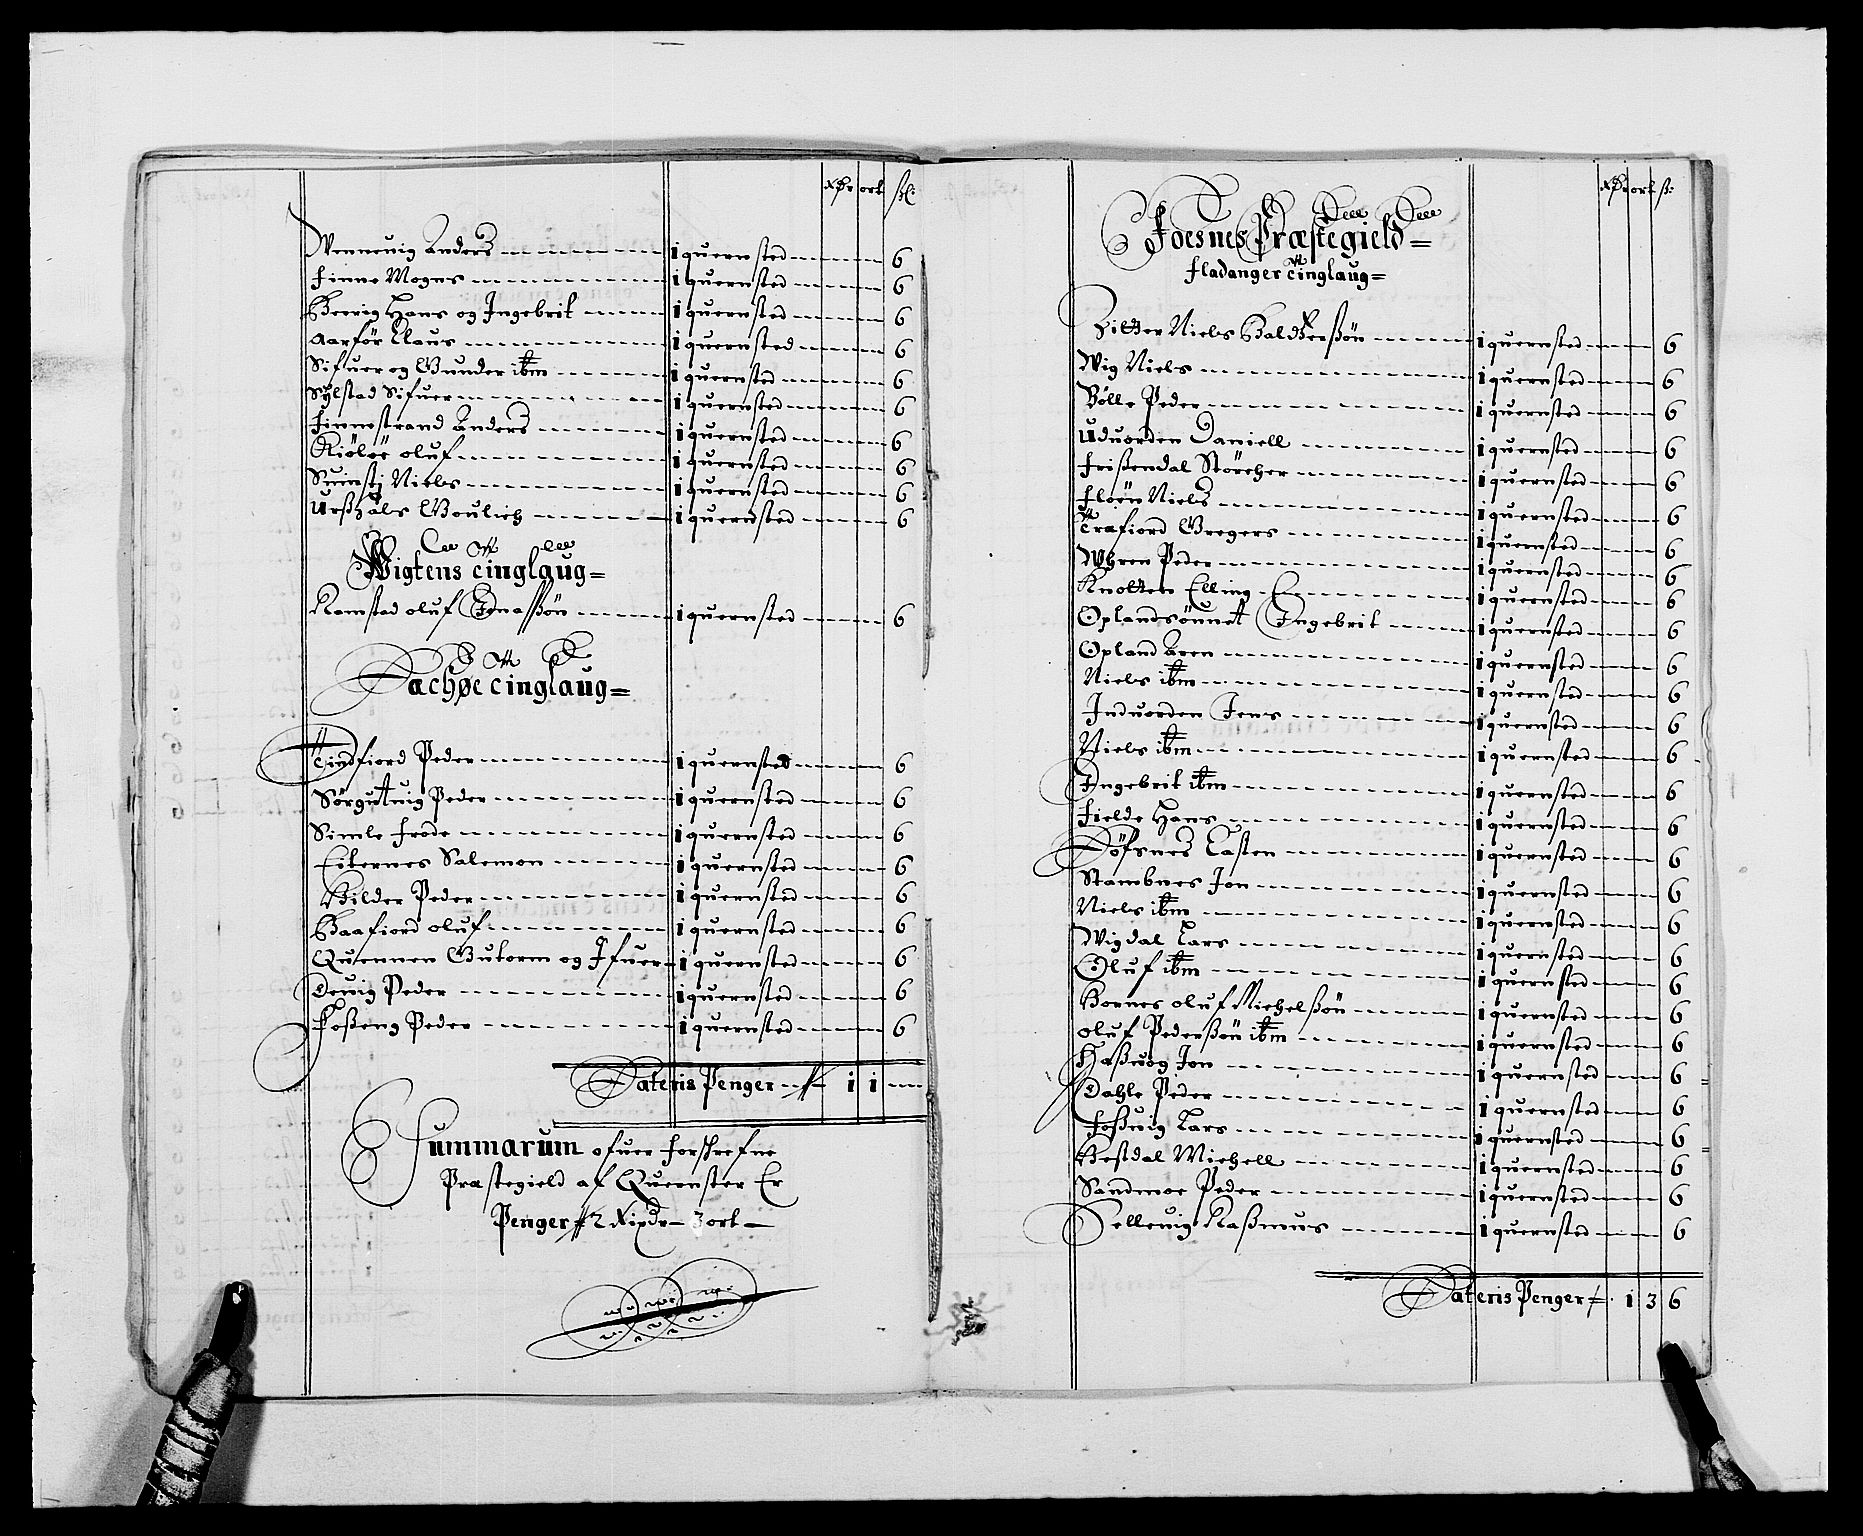 xdr ort ßl:
Wenneuig Anders 1 quernsted 6
Finne Mogns 1 quernsted 6
Beerig Hans og Ingebrit 1 quernsted 6
Aarför Claus 1 quernsted 6
Sifuer og Gunder ibm 1 quernsted 6
Sylstad Sifuer 1 quernsted 6
Finnestrand Anders 1 quernsted 6
Kiölöe oluf 1 quernsted 6
Suinsti Niels 1 quernsted 6
Urßhals Goulich 1 quernsted 6
Wigtens Tinglaug=
Ramstad oluf Jonaßön 1 quernsted 6
Sachøe Tinglaug=
Tindfiord Peder 1 quernsted 6
Sörgutuig Peder 1 quernsted 6
Simle Frode 1 quernsted 6
Eiternes Salemon 1 quernsted 6
Hilder Peder 1 quernsted 6
Haafiord oluf 1 quernsted 6
Quennen Gutorm og Ifuer 1 quernsted 6
Deuig Peder 1 quernsted 6
Foßeng Peder 1 quernsted 6
Lateris Penger 1 1
Summarum ofuer forschrefne
Præstegield af Quernster Er
Penger 2 Rixdr 3 ort
xdr ort ß:
Foesnes Præstegield=
Fladanger Tinglaug=
Zitter Niels Baldzerßön 1 quernsted 6
Wig Niels 1 quernsted 6
Bölle Peder 1 quernsted 6
Uduorden Daniell 1 quernsted 6
Frißendal Störcher 1 quernsted 6
Floen Niels 1 quernsted 6
Træfiord Gregers 1 quernsted 6
Whren Peder 1 quernsted 6
Knotten Elling 1 quernsted 6
Oplandsöunet Ingebrit 1 quernsted 6
Opland Aren 1 quernsted 6
Niels ibm 1 quernsted 6
Induorden Jens 1 quernsted 6
Niels ibm 1 quernsted 6
Ingebrit ibm 1 quernsted 6
Fielde Hans 1 quernsted 6
Löfsnes Casten 1 quernsted 6
Stambnes Jon 1 quernsted 6
Niels ibm 1 quernsted 6
Wigdal Lars 1 quernsted 6
Oluf ibm 1 quernsted 6
Hornes oluf Michelßön 1 quernsted 6
oluf Pederßön ibm 1 quernsted 6
Haßuog Jon 1 quernsted 6
Dahle Peder 1 quernsted 6
Foßuig Lars 1 quernsted 6
Hestdal Michell 1 quernsted 6
Sandmoe Peder 1 quernsted 6
Selleuig Raßmus 1 quernsted 6
Lateris Penger 1 3 6